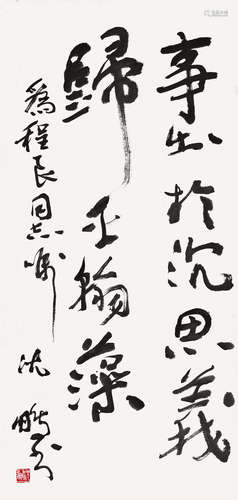 事出於沉思義
歸乎翰藻
為程良同志嘱
沈鹏书